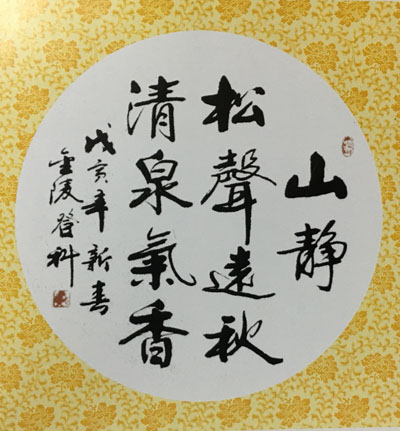 山静
松聲遠秋
清泉氣香
戊亥年新春
金陵登科